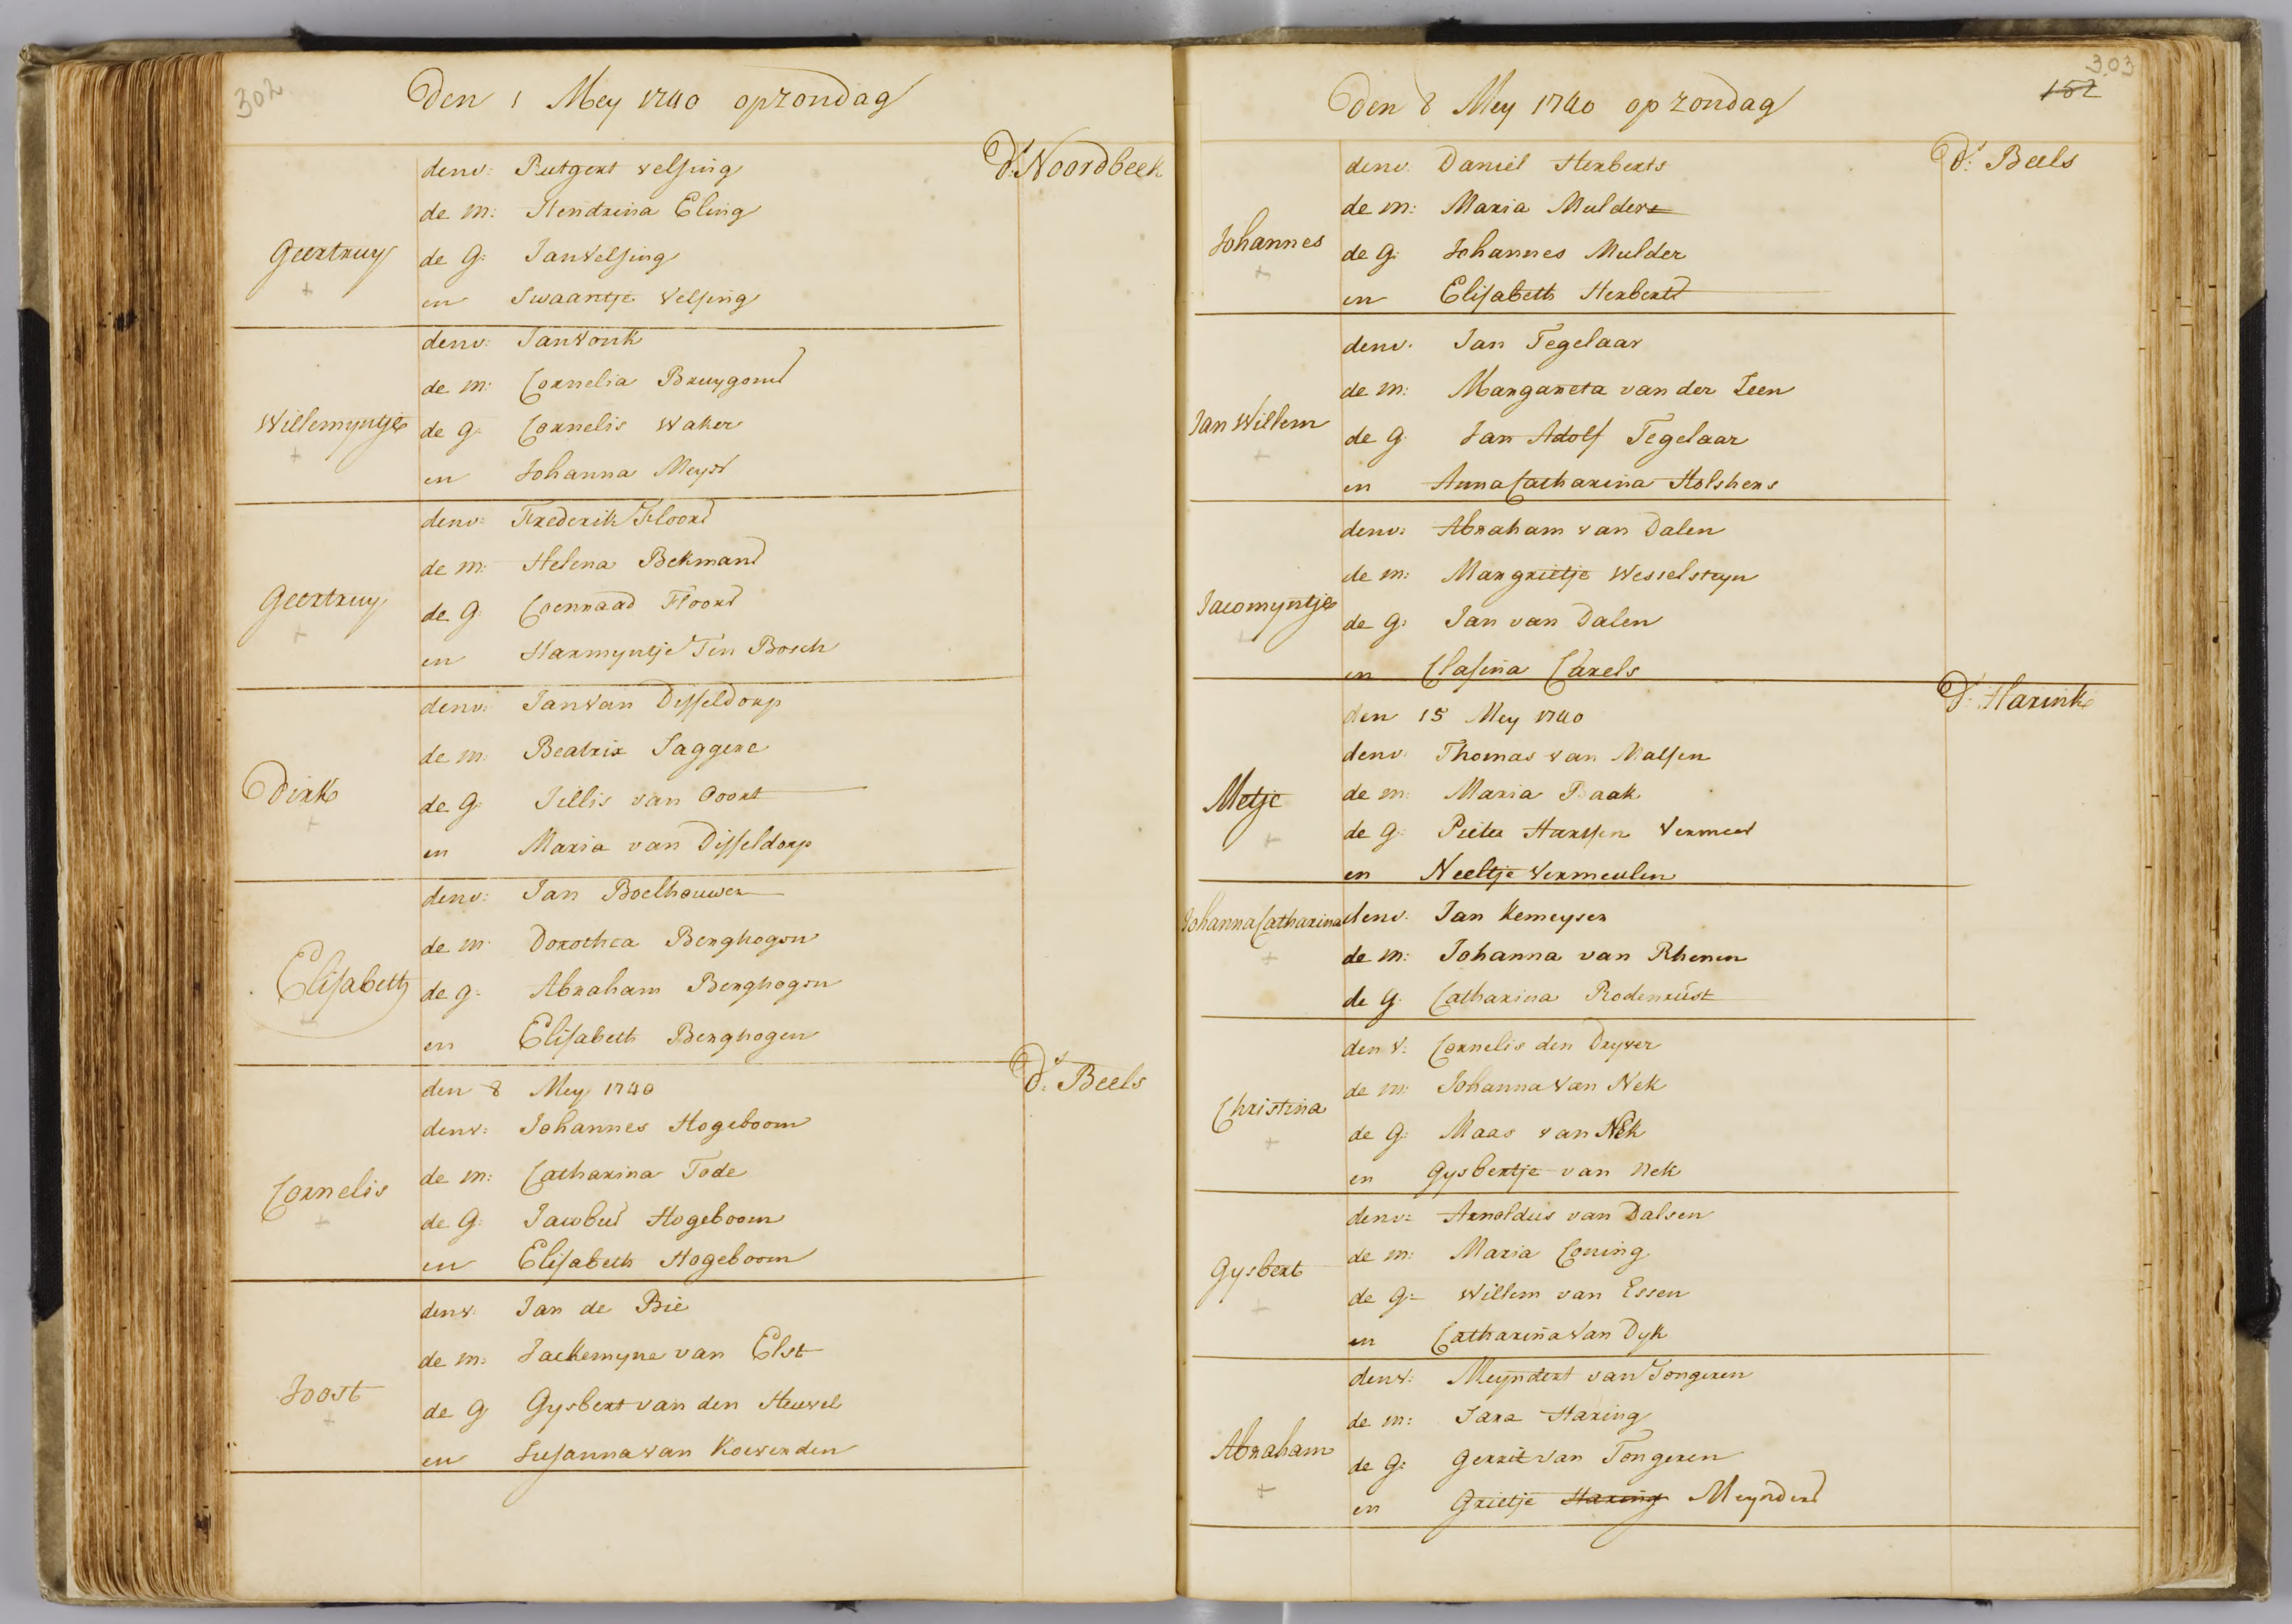 302
Den 1 Mey 1740 op zondag
Ds. Noordbeek
denv: Rutgert Velsing
de m: Hendrina Eling
Geertruy
de G: Jan Velsing
en Swaantje Velsing
denv: Jan Vonk
de m: Cornelia Bruygoms
Willemyntje
de g: Cornelis Waker
en Johanna Meyst
denv: Frederik Floors
de m: Helena Bekmans
Geertruy
de G: Coenraad Floors
en Harmyntje Ten Bosch
denv: Jan Van Disseldorp
de m: Beatrix Saggere
Dirk
de G: Jillis van Oort
en Maria van Disseldorp
denv: Jan Boelhouwer
de m: Dorothea Berghogen
Elisabeth
de g: Abraham Berghogen
en Elisabeth Berghogen
den 8 Mey 1740
Ds. Beels
denv: Johannes Hogeboom
de m: Catharina Tode
Cornelis
de G: Jacobus Hogeboom
en Elisabeth Hogeboom
denv: Jan de Bie
de m: Jackemyne van Elst
Joost
de G Gysbert van den Heuvel
en Susanna van Koeverden
303
152
Den 8 Mey 1740 op zondag
Ds. Beels
denv. Daniel Herberts
de m: Maria Mulders
Johannes
de g: Johannes Mulder
en Elisabeth Herberts
denv. Jan Tegelaar
de m: Margareta van der Leen
Jan Willem
de g: Jan Adolf Tegelaar
en Anna Catharina Holshers
denv: Abraham van Dalen
de m: Margrietje Wesselsteyn
Jacomyntje
de g: Jan van Dalen
en Clasina Carels
den 15 Mey 1740
Ds. Harink
denv. Thomas van Malsen
Metje
de m: Maria Baak
de g: Pieter Harssen Vermeer
en Neeltje Vermeulen
Johanna Catharina
denv. Jan Kemeyser
de m: Johanna van Rhenen
de g. Catharina Rodenrust
den v: Cornelis den Dryver
de m: Johanna Van Nek
Christina
de G: Maas van Nek
en Gysbertje van Nek
denv: Arnoldus van Dalsen
de m: Maria Coning
Gysbert
de G: Willem van Essen
en Catharina Van Dyk
denv: Meyndert van Tongeren
de m: Sara Haring
Abraham
de G: Gerrit van Tongeren
en Grietje Haring Meynders